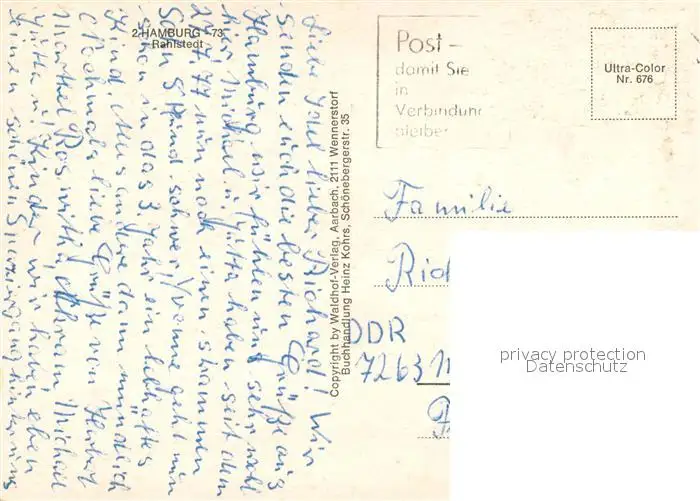 2 HAMBURG - 73
Rahlstedt
Liebe Ina! lieber Richard! Wir
senden euch die besten Grüße aus
Hamburg wir fühlen uns sehr wohl
hier Michael u. Jutta haben seit dem
77 nun noch einen strammen
Sohn 5 Pfund schwer Yvonne geht nun
schon in das 3. Jahr ein lebhaftes
Kind. Alles andere dann mündlich
Nochmals liebe Grüße von Herbert
Marthel Roswitha Michael
Jutta u. Kinder wir haben eben
einen schönen Spaziergang
Copyright by Waldhof-Verlag, Aarbach, 2111 Wennerstorf
Buchhandlung Heinz Kohrs, Schönebergerstr. 35
Post -
damit Sie
in
Verbindung
bleiben
Ultra-Color
Nr. 676
Familie
Rich
DDR
7263
privacy protection
Datenschutz